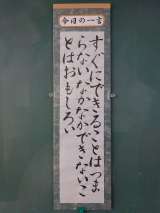 今日の一言
すぐにできることはつま
らない、なかなかできないこ
とはおもしろい